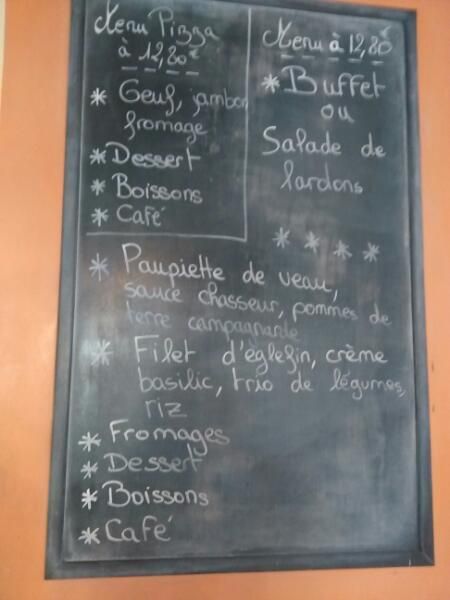 Menu Pizza
à 12,80€
* Oeuf, jambon
fromage
* Dessert
* Boissons
* Café
Menu à 12,80€
* Buffet
ou
Salade de
lardons
* * * *
* Paupiette de veau,
sauce chasseur, pommes de
terre campagnarde
* Filet d'èglefin, crème
basilic, trio de légumes,
riz
* Fromages
* Dessert
* Boissons
* Café